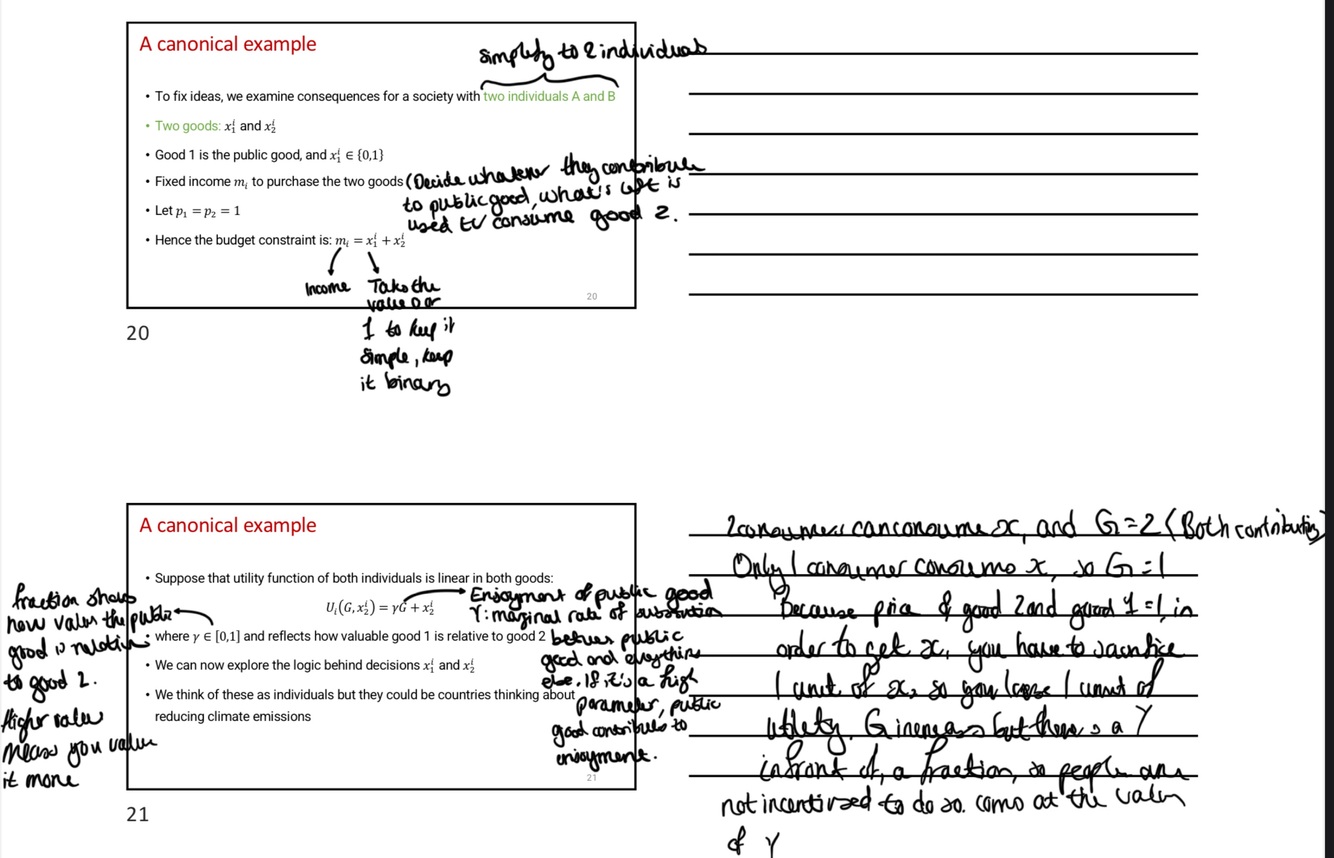 A canonical example
simplify to 2 individuals
• To fix ideas, we examine consequences for a society with two individuals A and B
• Two goods: x₁ⁱ and x₂ⁱ
• Good 1 is the public good, and x₁ⁱ ∈ {0,1}
• Fixed income mᵢ to purchase the two goods
(Decide whatever they contribute
to public good, what's left is
used to consume good 2.
• Let p₁ = p₂ = 1
• Hence the budget constraint is: mᵢ = x₁ⁱ + x₂ⁱ
Income
Take the
value 0 or
1 to keep it
simple, keep
it binary
20
20
A canonical example
• Suppose that utility function of both individuals is linear in both goods:
Uᵢ(G, x₂ⁱ) = γG + x₂ⁱ
• where γ ∈ [0,1] and reflects how valuable good 1 is relative to good 2
• We can now explore the logic behind decisions x₁ⁱ and x₂ⁱ
• We think of these as individuals but they could be countries thinking about
reducing climate emissions
fraction shows
how the public
good is
to good 2.
Higher
means you value
it more
Enjoyment of public good
γ: marginal rate of
public
good and everything
else. If it's a high
parameter, public
good contributes to
enjoyment.
21
21
2 can consume x, and G=2 (Both contributing)
Only 1 consumer x, so G=1
Because price of good 2 and good 1 =1, in
order to get x, you have to sacrifice
1 unit of x₂ so you 1 unit of
G increases but there is a γ
infront of, a fraction, so people are
not to do so. at the
of γ